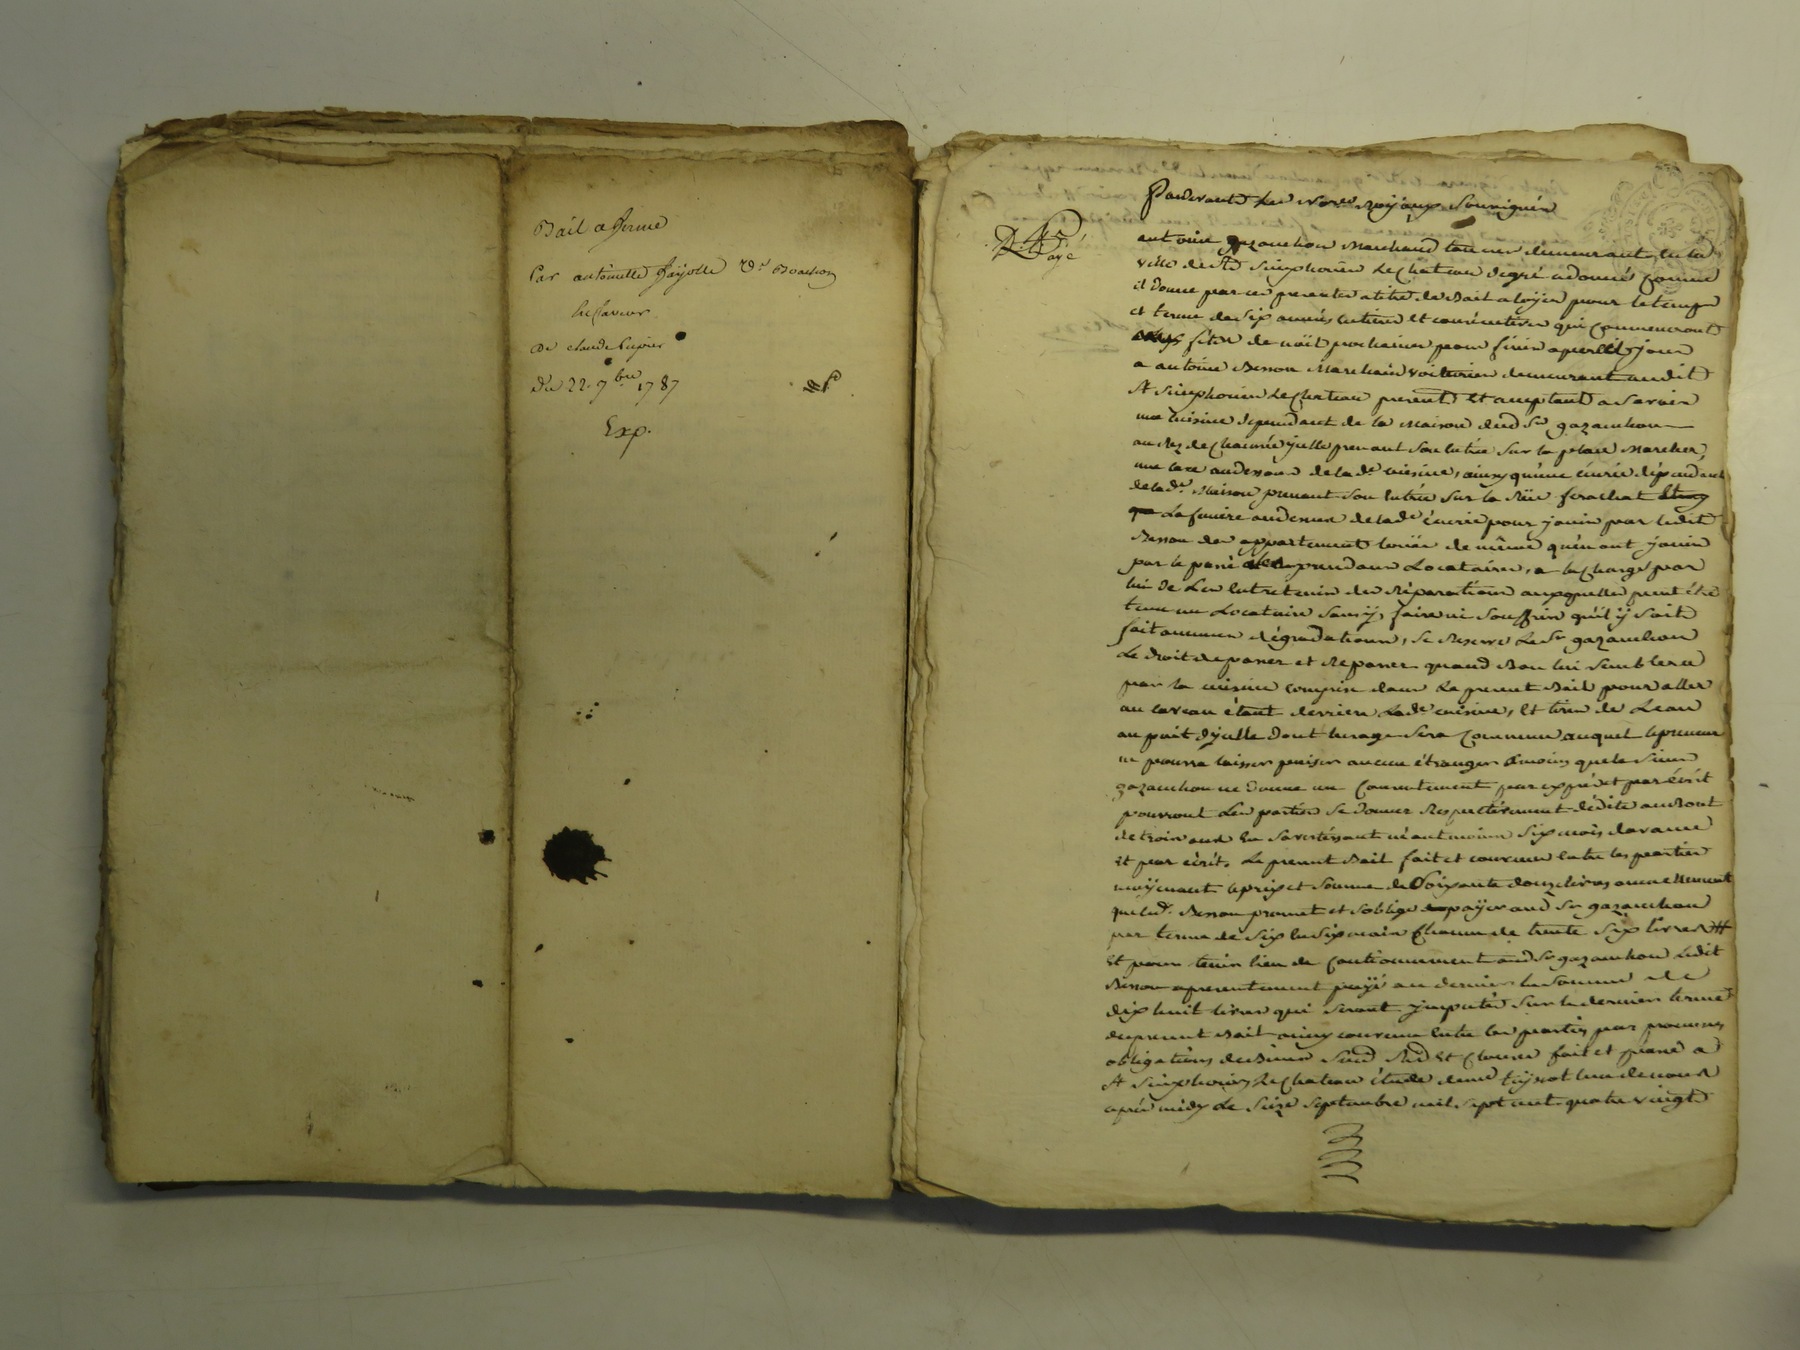 Bail a ferme
Par antoinette fayolle Ve Bouchon
en faveur
de claude Pupier
Du 22. 7bre 1787
Exp.
Pardevant Les Nores Royaux Soussignés
payé
antoine gazanchon Marchand taneur demeurant en la
ville de St Simphorien Le Chateau de gré a donné comme
il Donne par ces presentes a titre de Bail a loyer pour le temps
et terme de six années entieres et consécutives qui Commenceront
fêtes de noël prochaines pour finir a pareil jour
a antoine Besson Marchand voiturier demeurant audit
St Simphorien Le Chateau present et acceptant a Savoir
une cuisine dépendant de la Maison dud Sr gazanchon
au Rez de Chaussée jcelle prenant son entrée sur la place Marchez,
une cave audessous de lade cuisine, ainsy qu'une écurie dépendant
de lade Maison prenant son entrée sur la Rüe
La feniere audessus de lade écurie pour jouir par ledit
Besson des appartements louës de même qu'en ont joui
par le passé les precedans Locataires, a la Charge par
lui de Les entretenir des Réparations auxquelles peut être
tenu un Locataire sans y faire ni souffrir qu'il y soit
fait aucunes dégradations, se Reserve Le Sr gazanchon
Le droit de passer et Repasser quand Bon lui semblera
par la cuisine comprise dans Le present Bail pour aller
au caveau étant derriere Lade cuisine, et tirer de Leau
au puit d'jcelle dont lusage sera Commun auquel le preneur
ne pourra laisser puiser aucun étranger a moins que le sieur
gazanchon ne Donne un Consentement par exprès et par écrit
pourront Les parties se donner Respectivement dédite au Bout
de trois ans en savertissant néantmoins six mois davance
et par écrit. Le present Bail fait et convenu entre les parties
moÿenant le prix et somme de Soixante douze livres annuellement
que led. Besson promet et soblige payer aud Sr gazanchon
par terme de six en six mois Chacun de trente six livres
Et pour tenir lieu de Cautionnement aud Sr gazanchon Ledit
Besson a presentement payé au dernier la somme de
dix huit livres qui seront jmputés sur le dernier terme
du present Bail ainsy convenu entre les parties par promesses
obligations de Biens Soud Red et Clauses fait et passé a
St Simphorien Le Chateau étude de me lun de nous
après midy Le seize septembre mil sept cent quatre vingt